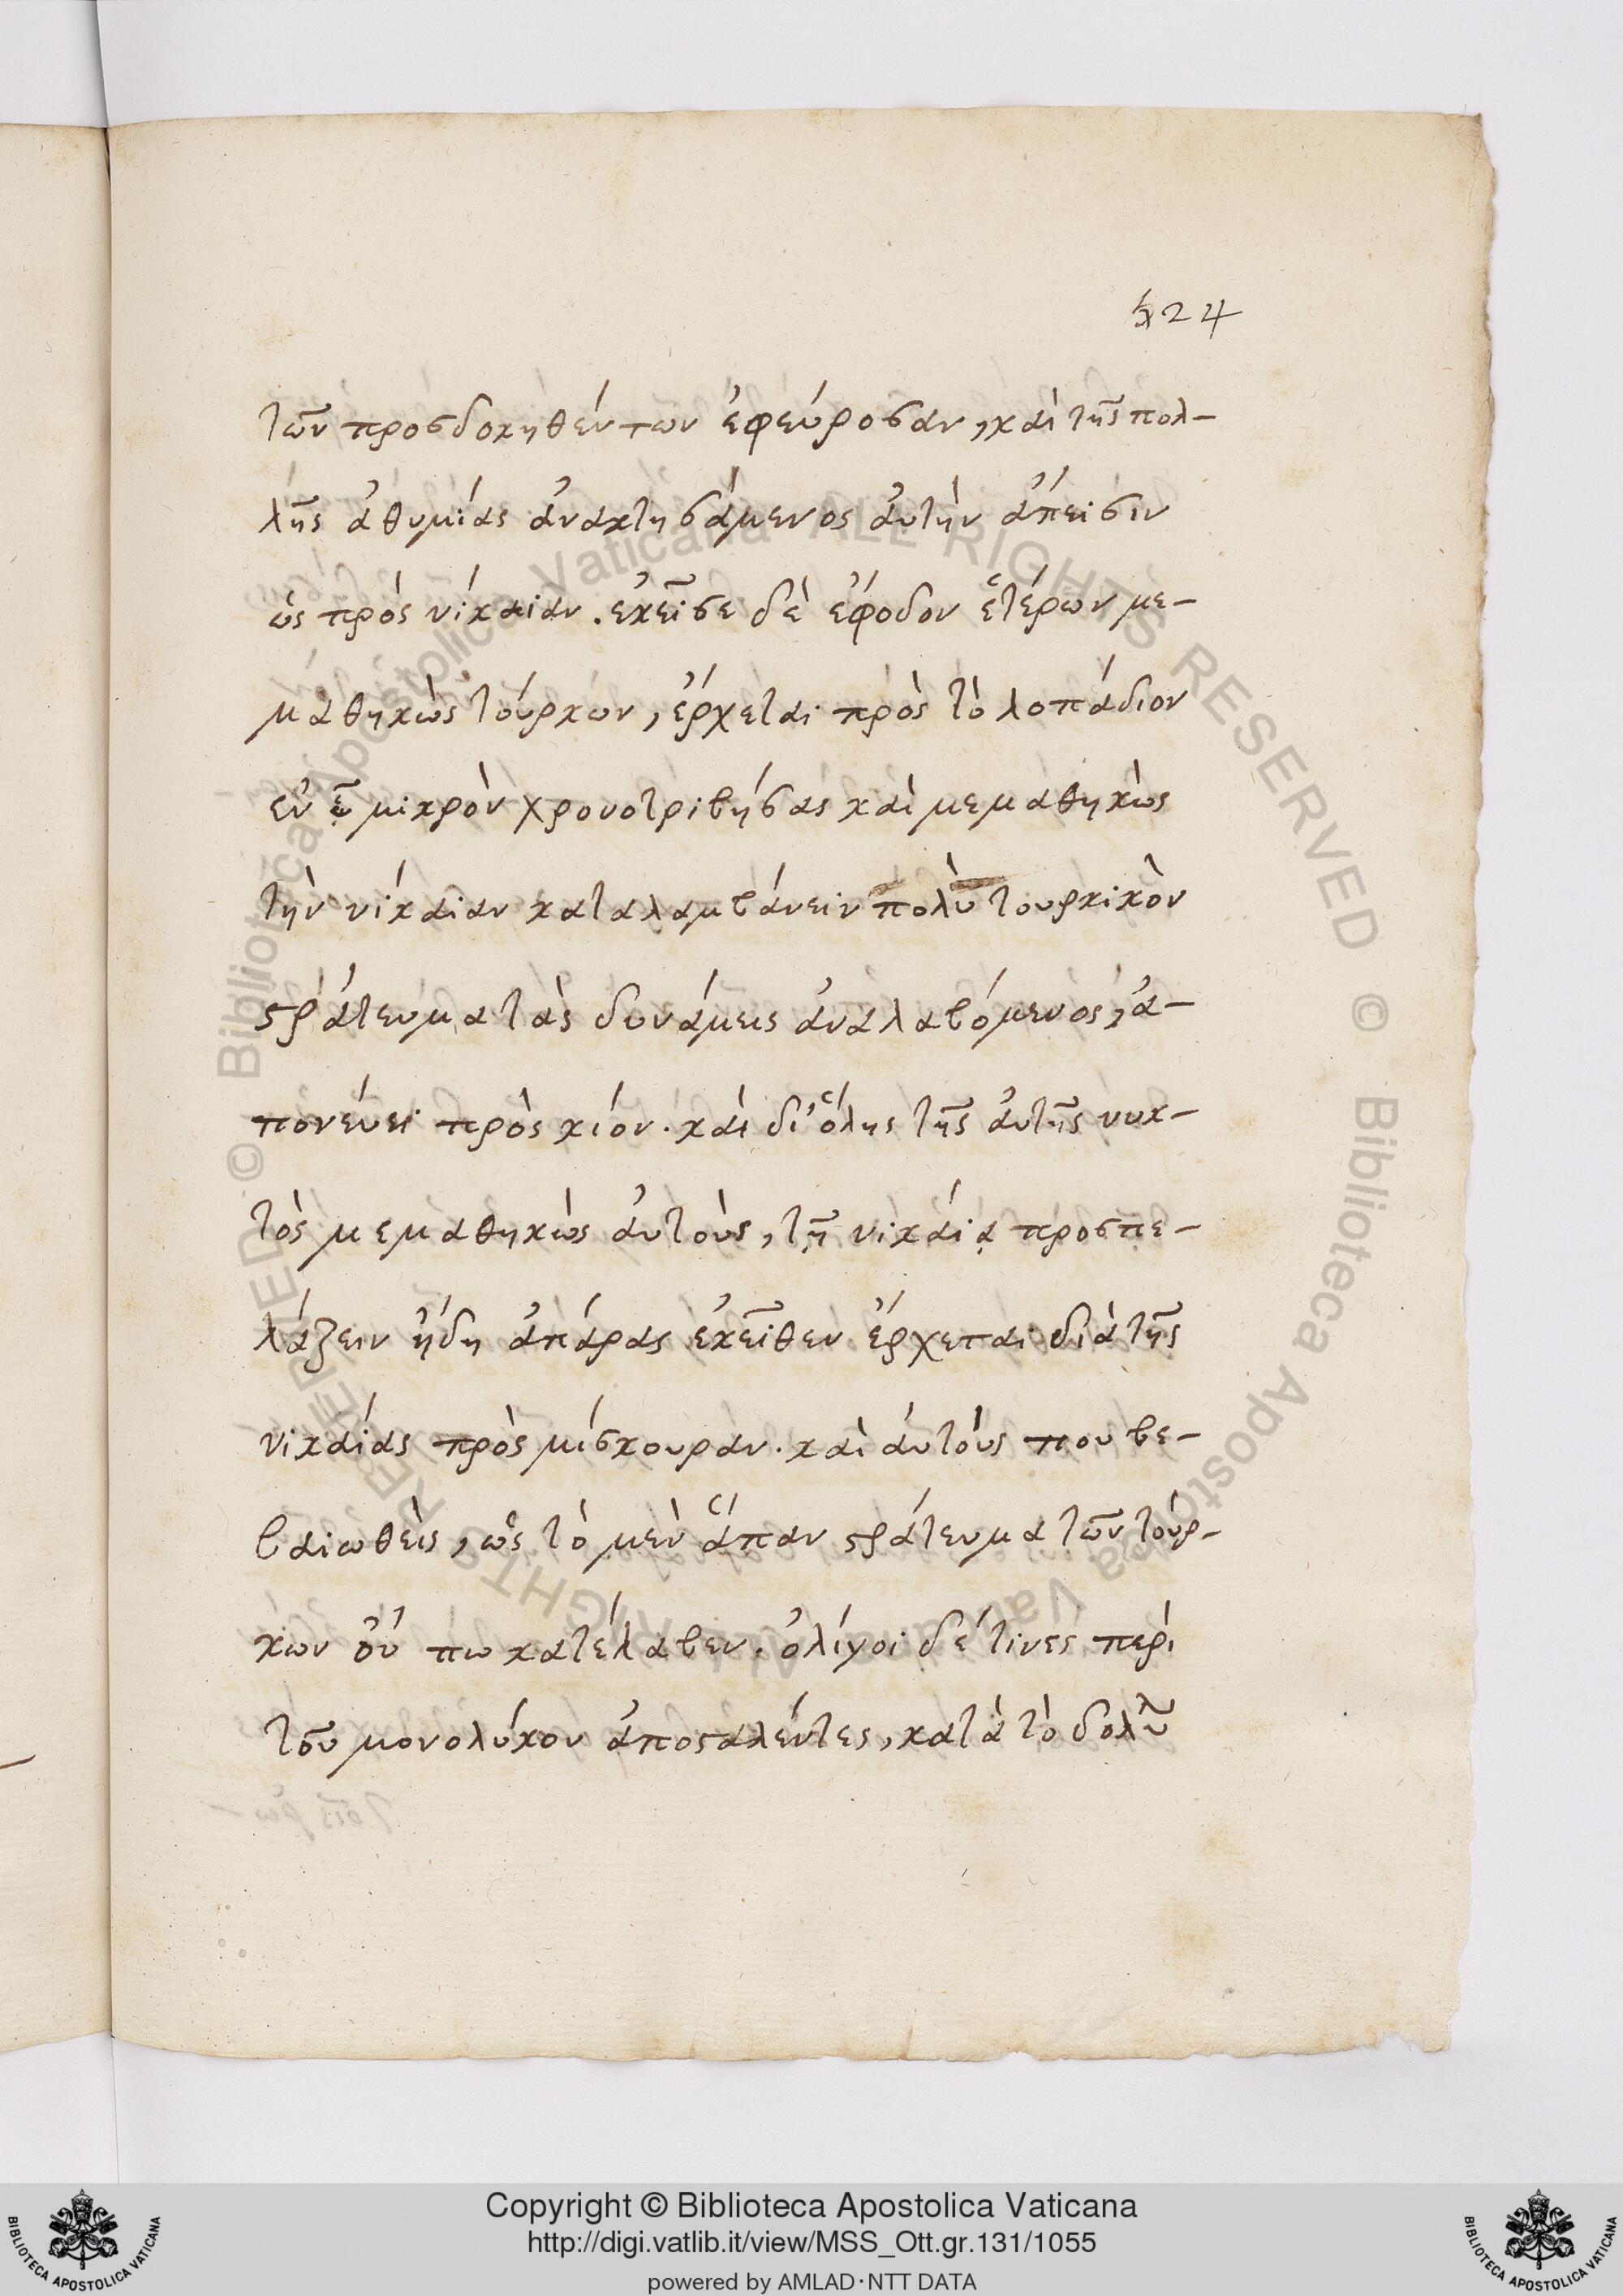 524
τῶν προσδοκηθέντων ἐφεύροσαν, καὶ τῆς πολ-
λῆς ἀθυμίας ἀνακτησάμενος ἀυτὴν ἄπεισιν
ὡς πρὸς νίκαιαν. ἐκεῖσε δὲ ἔφοδον ἑτέρων με-
μαθηκὼς τούρκων, ἔρχεται πρὸς τὸ λοπάδιον
ἐν ᾧ μικρὸν χρονοτριβήσας καὶ μεμαθηκὼς
τὴν νίκαιαν καταλαμβάνειν πολὺ τουρκικὸν
στράτευμα τὰς δυνάμεις ἀναλαβόμενος, ἀ-
πονέυει πρὸς κίον. καὶ δι' ὅλης τῆς ἀυτῆς νυκ-
τὸς μεμαθηκὼς ἀυτοὺς, τῇ νικάιᾳ προσπε-
λάζειν ἤδη ἀπάρας ἐκεῖθεν ἔρχεται διὰ τῆς
νικάιας πρὸς μίσκουραν. καὶ ἀυτόυς που βε-
βαιωθεὶς, ὡς τὸ μὲν ἅπαν στράτευμα τῶν τούρ-
κων οὔ πω κατέλαβεν. ὀλίγοι δέ τινες περὶ
τοῦ μονολύκου ἀποσταλέντες, κατὰ τὸ δολῦλ
Copyright © Biblioteca Apostolica Vaticana
http://digi.vatlib.it/view/MSS_Ott.gr.131/1055
powered by AMLAD·NTT DATA
BIBLIOTECA APOSTOLICA VATICANA
BIBLIOTECA APOSTOLICA VATICANA
© Biblioteca Apostolica Vaticana ALL RIGHTS RESERVED © Biblioteca Apostolica Vaticana ALL RIGHTS RESERVED